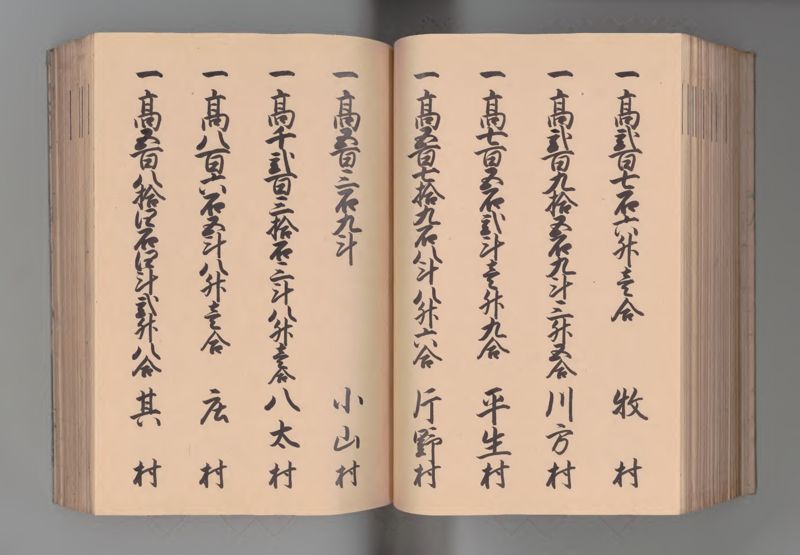 一高弐百七石六升壱合 牧村
一高弐百九拾五石九斗三升五合 川方村
一高七百五石弐斗壱升九合 平生村
一高五百七拾九石八斗八升六合 片野村
一高五百三石九斗 小山村
一高千弐百三拾石三斗八升壱合 八太村
一高八百六石五斗八升壱合 庄村
一高五百八拾四石四斗弐升八合 其村